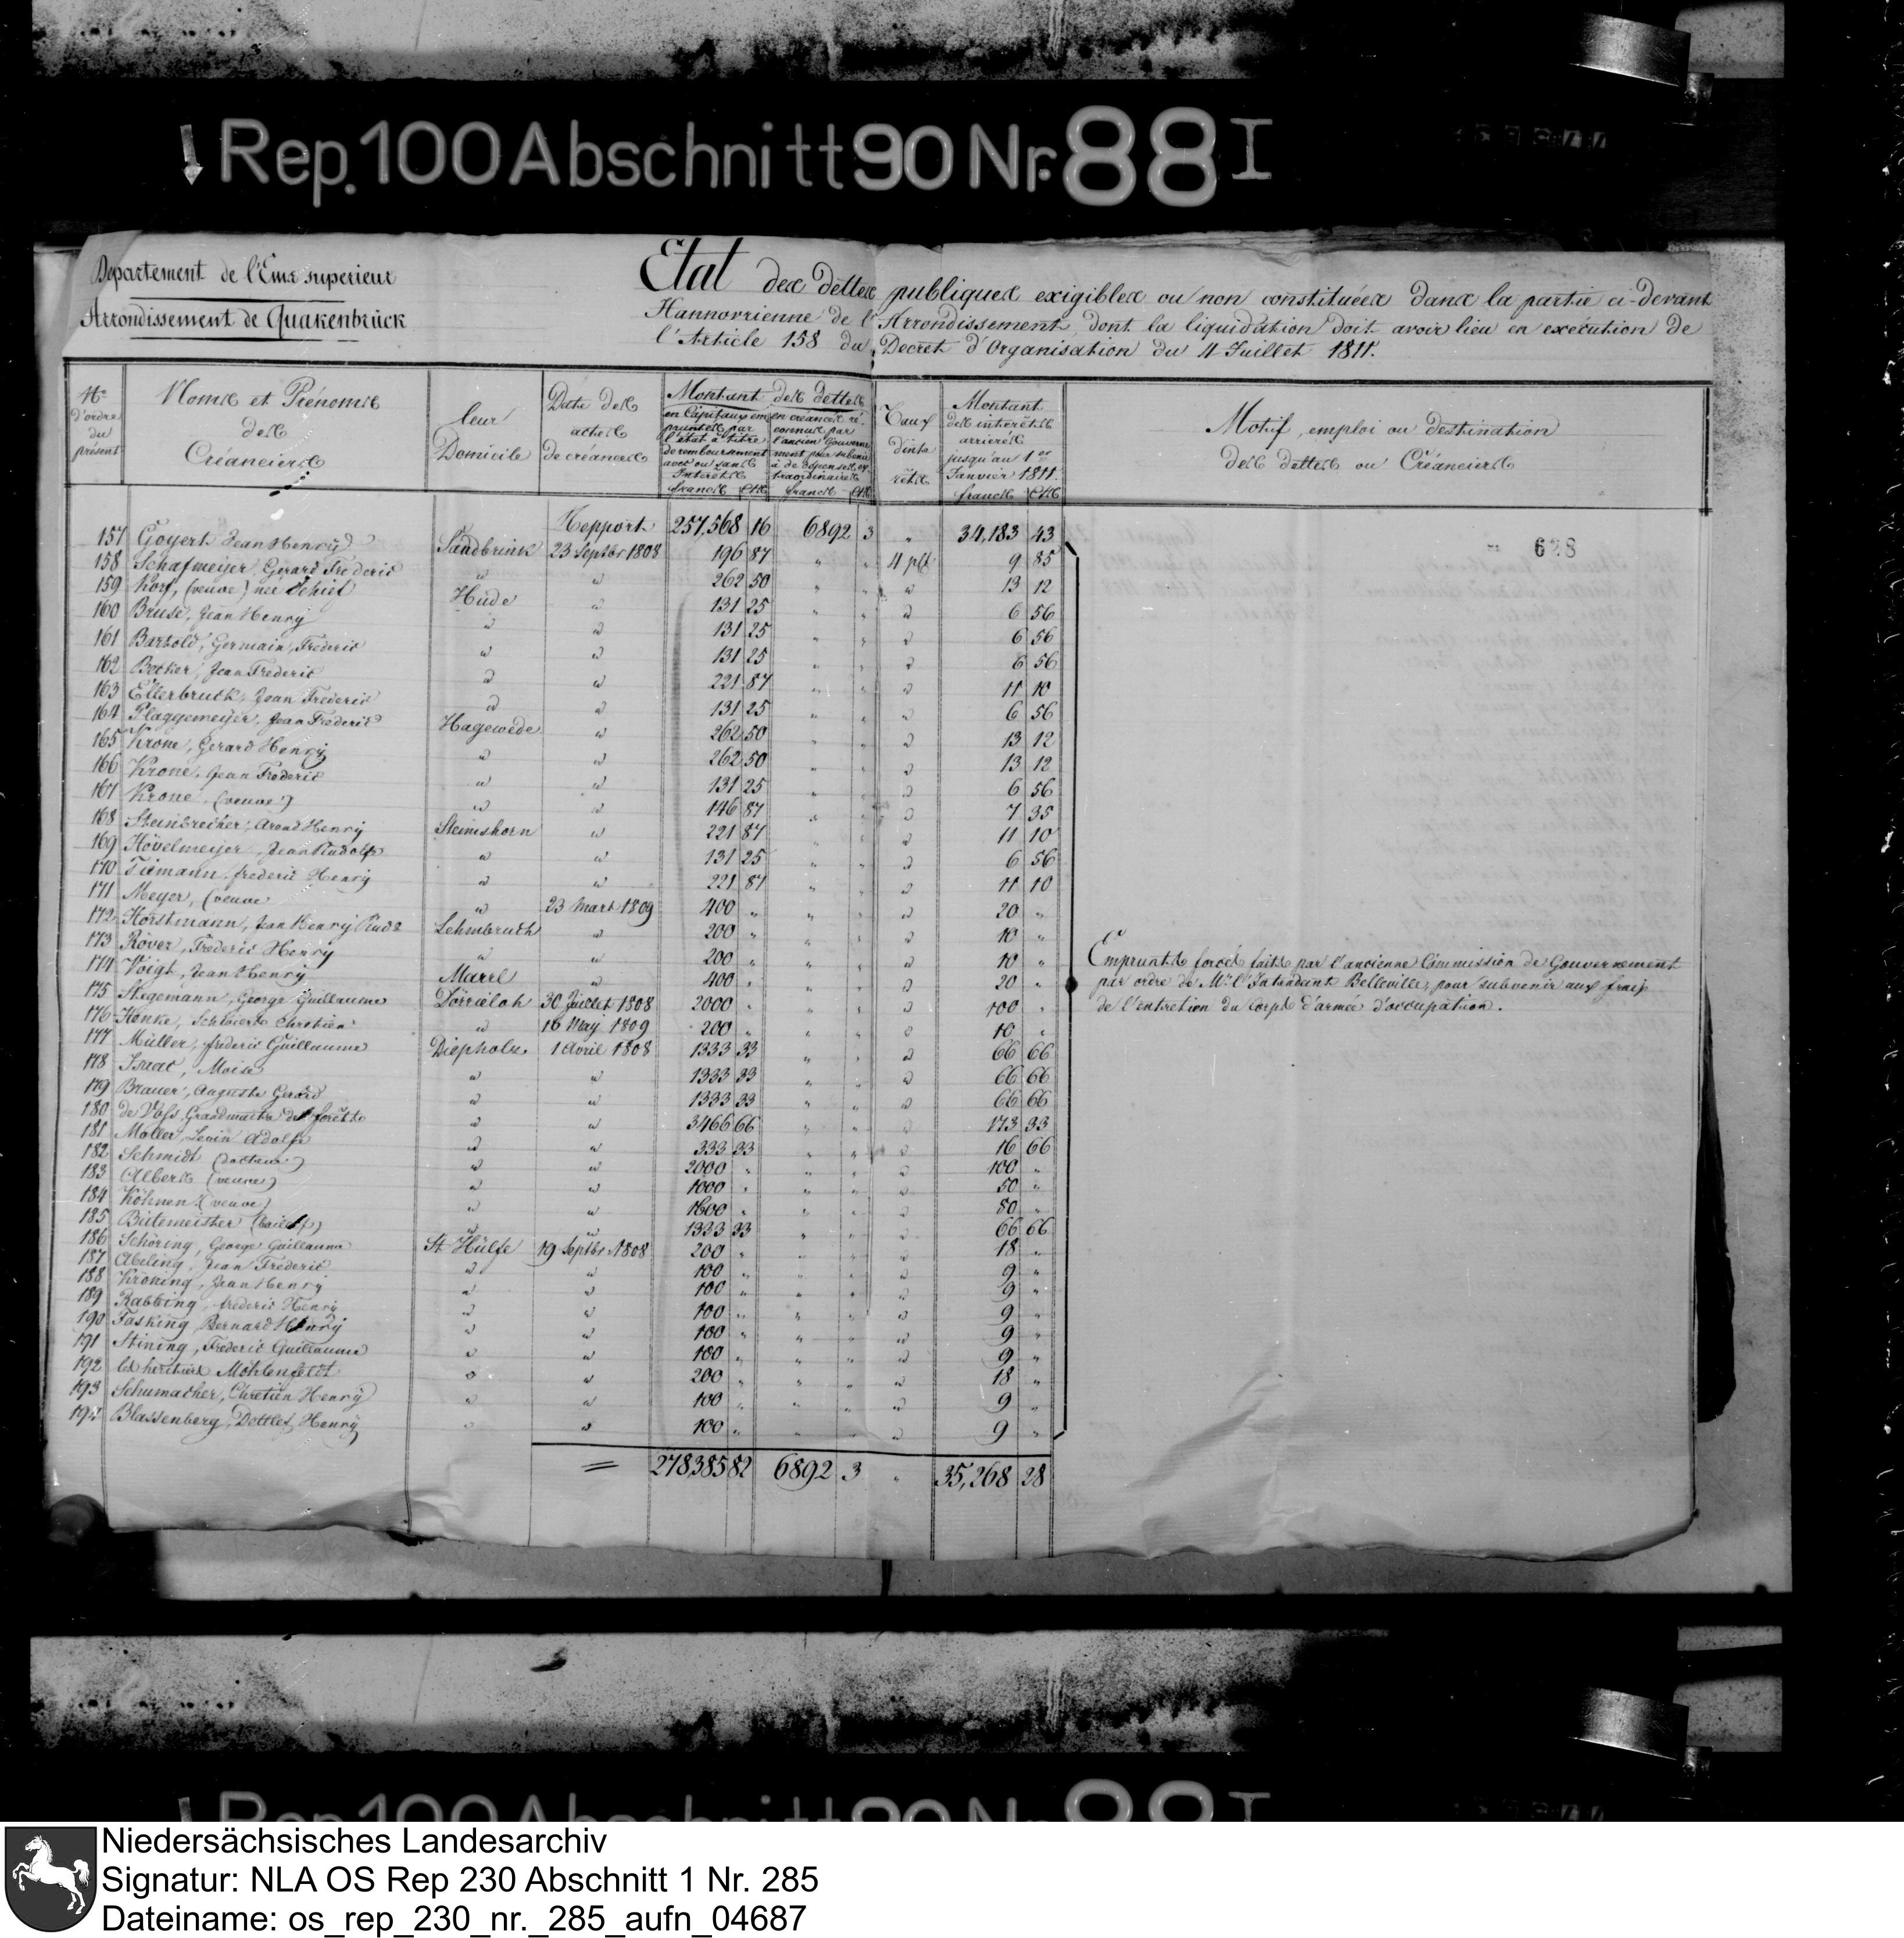 Rep. 100 Abschnitt 90 Nr. 88 I
Departement de l'Ems superieur
Arrondissement de Quakenbrück
Etat des dettes publiques exigibles ou non constituées dans la partie ci-devant
Hannovrienne de l'Arrondissement, dont la liquidation doit avoir lieu en exécution de
l'Article 158 du Decret d'Organisation du 4 Juillet 1811.
Nos d'ordre du présent
Noms et Prénoms des Créanciers
leur Domicile
Date des actes de créances
Montant des dettes
en Capitaux empruntés par l'état à titre de remboursement avec ou sans Interêts
francs Cts
en créances reconnus par l'ancien Gouvernement pour subvenir à de dépenses extraordinaires
francs Cts
Taux d'intérêts
Montant des interêts arrierés jusqu'au 1er Janvier 1811.
francs Cts
Motif, emploi ou destination
des dettes ou Créanciers
628
Repport 257,568 16 6892 3 " 34,183 43
157 Goyert Jean Henry Sandbrink 23 Septbr 1808 196 87 " " 4 pCt 9 85
158 Schafmeyer, Gerard Frederic " " 262 50 " " " 13 12
159 Korf, (veuve) née Schiel Hüde " 131 25 " " " 6 56
160 Bruse, Jean Henry " " 131 25 " " " 6 56
161 Barhold, Germain Frederic " " 131 25 " " " 6 56
162 Becker, Jean Frederic " " 221 87 " " " 11 10
163 Ellerbruck, Jean Frederic " " 131 25 " " " 6 56
164 Plaggemeyer, Jean Frederic Hagewede " 262 50 " " " 13 12
165 Krone, Gerard Henry " " 262 50 " " " 13 12
166 Krone, Jean Frederic " " 131 25 " " " 6 56
167 Krone, (veuve) " " 146 87 " " " 7 35
168 Steinbrecher, Arend Henry Stemshorn " 221 87 " " " 11 10
169 Hövelmeyer, Jean Rudolfe " " 131 25 " " " 6 56
170 Tiemann, frederic Henry " " 221 87 " " " 11 10
171 Meyer, (veuve " 23 Mart 1809 400 " " " " 20 "
172 Horstmann, Jean Henry Rud. Lehmbruch " 200 " " " " 10 "
173 Röver, Frederic Henry " " 200 " " " " 10 "
174 Voigt, Jean Henry Marel " 400 " " " " 20 "
175 Stegemann, George Guillaume Dörrieloh 30 Juillet 1808 2000 " " " " 100 "
176 Henke, Chretien " 16 May 1809 200 " " " " 10 "
177 Müller, frederic Guillaume Diepholz 1 Avril 1808 1333 33 " " " 66 66
178 Isaac, Moise " " 1333 33 " " " 66 66
179 Brauer, Auguste Gerard " " 1333 33 " " " 66 66
180 de Voss Grandmaitre des forêtts " " 3466 66 " " " 173 33
181 Möller, Levin Adolfe " " 333 33 " " " 16 66
182 Schmidt (docteur) " " 2000 " " " " 100 "
183 Albers (veuve) " " 1000 " " " " 50 "
184 Köhnen (veuve) " " 1600 " " " " 80 "
185 Bütemeister (bailly) " " 1333 33 " " " 66 66
186 Schöring, George Guillaume St Hülfe 19 Septbr 1808 200 " " " " 18 "
187 Abeling, Jean Frederic " " 100 " " " " 9 "
188 Kröning, Jean Henry " " 100 " " " " 9 "
189 Rabbing, frederic Henry " " 100 " " " " 9 "
190 Fasking Bernard Henry " " 100 " " " " 9 "
191 Stining, Frederic Guillaume " " 100 " " " " 9 "
192 les heritiers Möhlenfeldt " " 200 " " " " 18 "
193 Schumacher, Chretien Henry " " 100 " " " " 9 "
194 Blassenberg, Dettlef Henry " " 100 " " " " 9 "
Emprunts forcés faits par l'ancienne Commission de Gouvernement
par ordre de Mr l'Intendant Belleville, pour subvenir aux frais
de l'entretien du Corps d'armée d'occupation.
= 278,385 82 6892 3 " 35,268 28
Rep. 100 Abschnitt 90 Nr. 88 I
Niedersächsisches Landesarchiv
Signatur: NLA OS Rep 230 Abschnitt 1 Nr. 285
Dateiname: os_rep_230_nr._285_aufn_04687